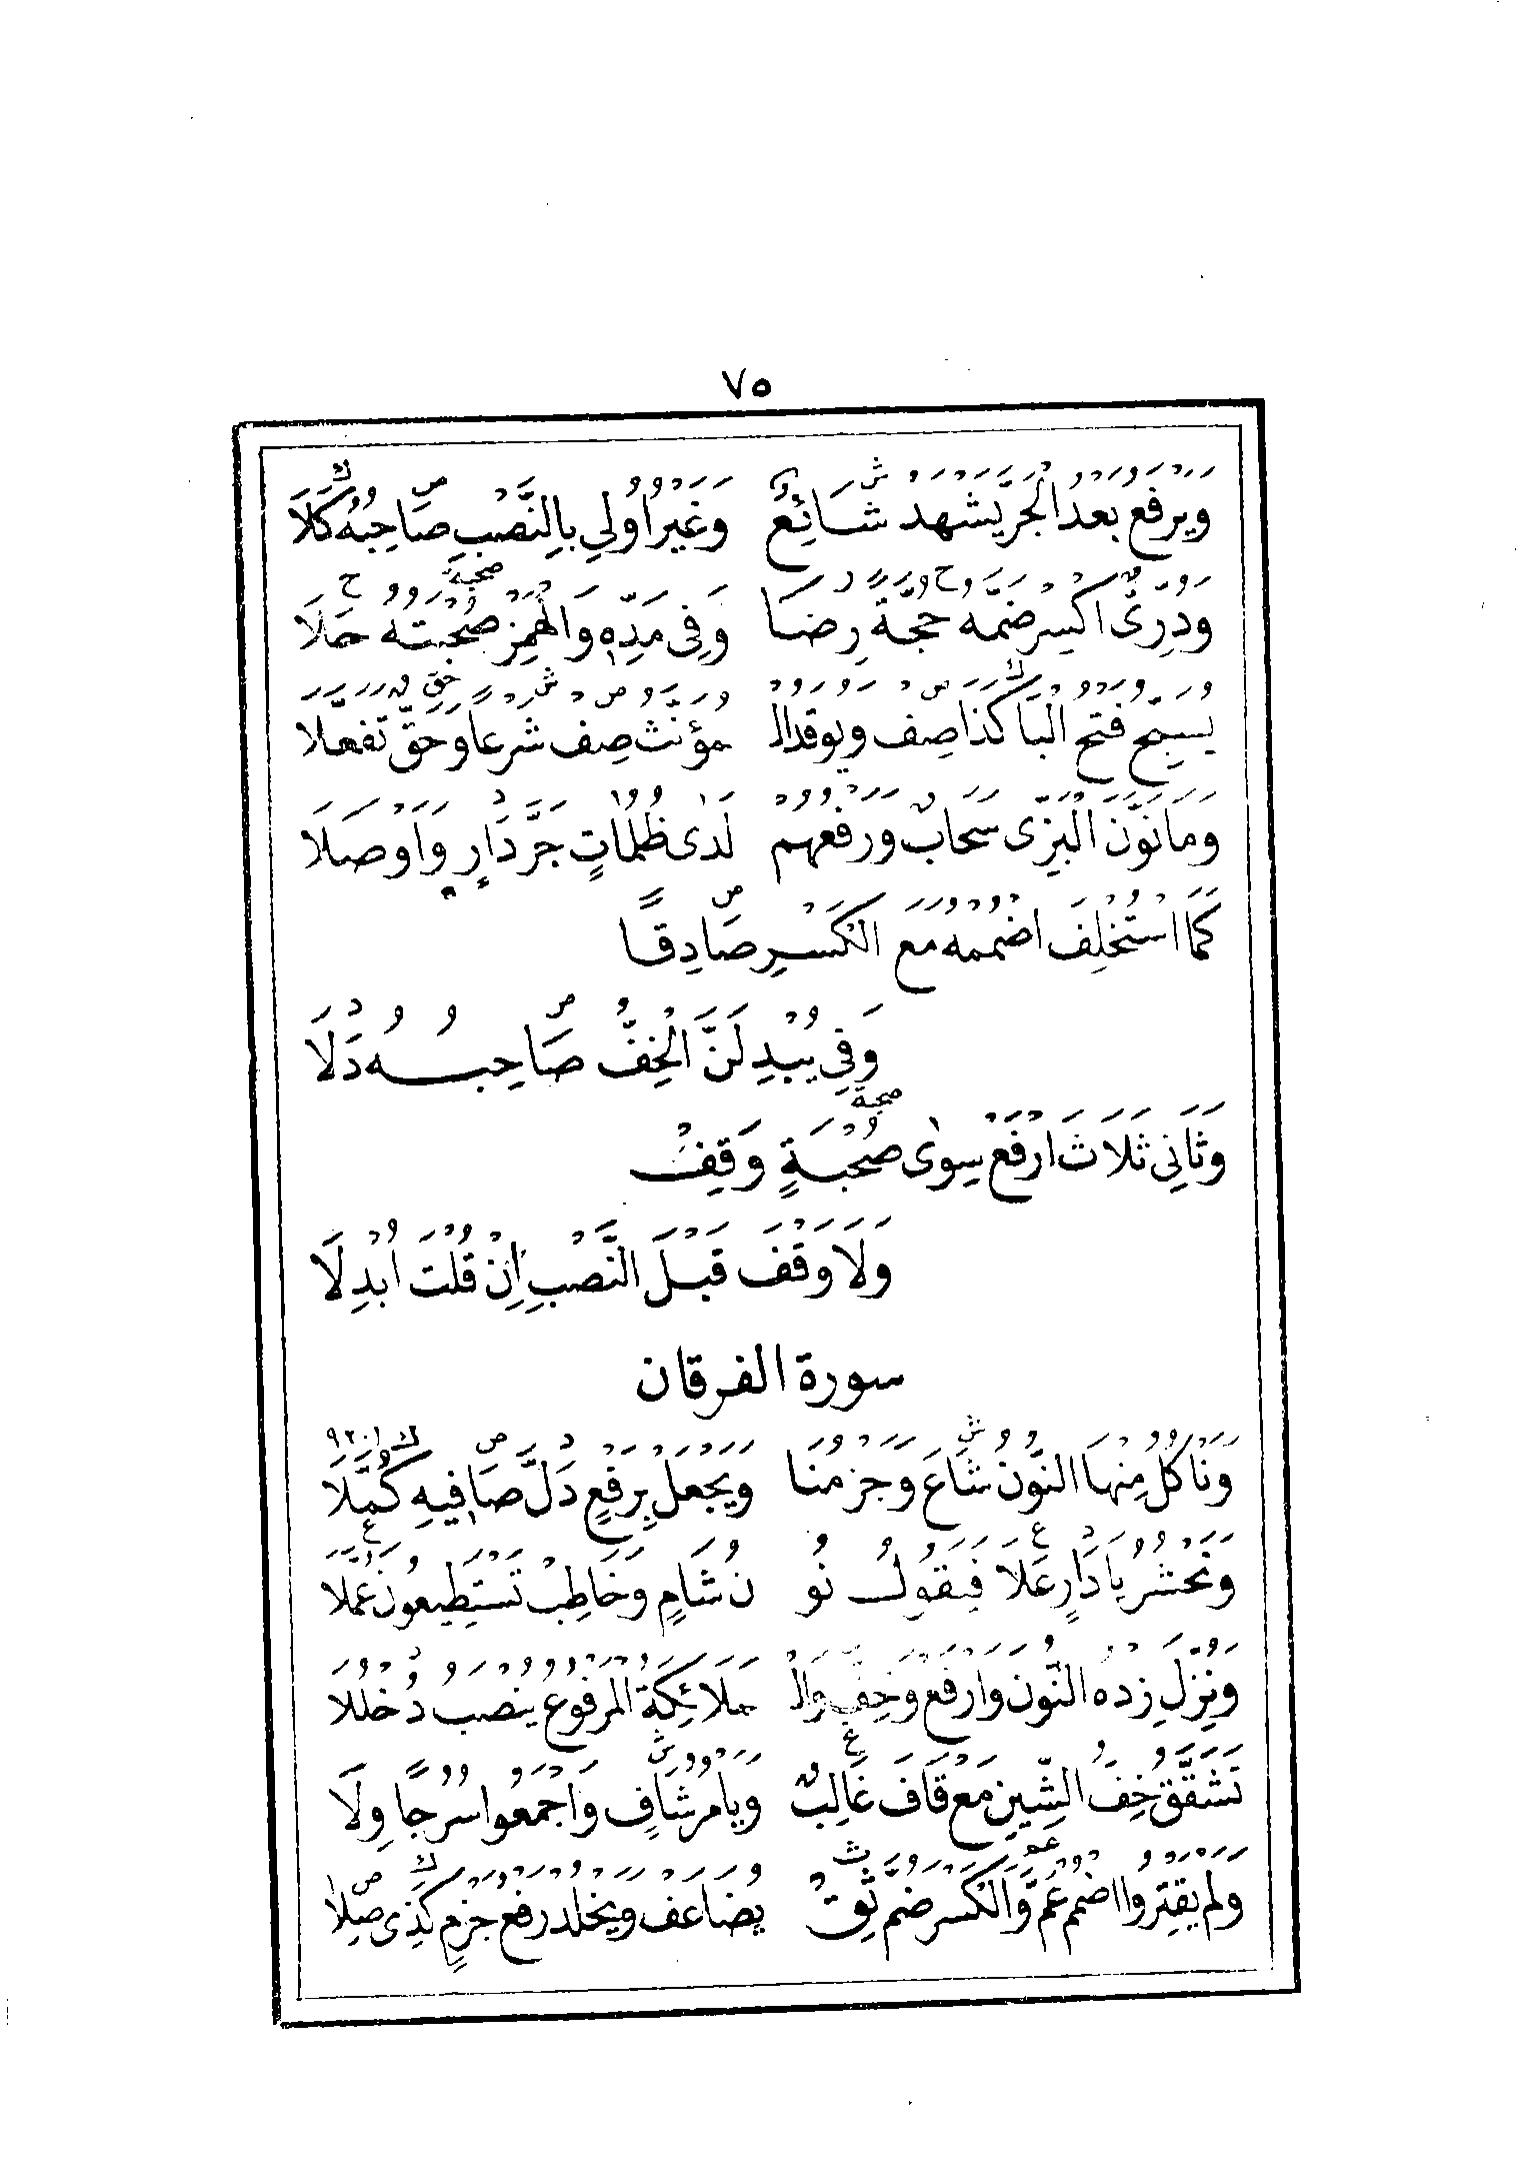 ٧٥
وَيَرْفَعُ بَعْدُ الْجَرَّ يَشْهَدُ شَائِعٌ وَغَيْرُ اُولِي بِالنَّصْبِ صَاحِبُهُ كَلَا
وَدُرِّيٌّ اكْسِرْ ضَمَّهُ حُجَّةً رِضَا وَفِي مَدِّهِ وَالْهَمْزِ صُحْبَتُهُ حَلَا
يُسَبِّحُ فَتْحُ الْبَا كَذَا صِفْ وَيُوقَدُ الْ مُؤَنَّثُ صِفْ شَرْعًا وَحَقٌّ تَفَعَّلَا
وَمَا نَوَّنَ الْبَزِّى سَحَابٌ وَرَفْعُهُمْ لَدَى ظُلُمَاتٍ جَرَّ دَارٍ وَاَوْصَلَا
كَمَا اسْتُخْلِفَ اضْمُمْهُ مَعَ الْكَسْرِ صَادِقًا
وَفِي يُبْدِلَنَّ الْخِفُّ صَاحِبُهُ دَلَا
وَثَانِيَ ثَلَاثَ ارْفَعْ سِوٰى صُحْبَةٍ وَقِفْ
وَلَا وَقْفَ قَبْلَ النَّصْبِ اِنْ قُلْتَ اُبْدِلَا
سورة الفرقان
وَنَاْكُلُ مِنْهَا النُّونُ شَاعَ وَجَزْمُنَا وَيَجْعَلْ بِرَفْعٍ دَلَّ صَافِيهِ كُمَّلَا ٩٢٠
وَنَحْشُرُ يَا دَارٍ عَلَا فَيَقُولُ نُو نُ شَامٍ وَخَاطِبْ تَسْتَطِيعُونَ عُمَّلَا
وَنُزِّلَ زِدْهُ النُّونَ وَارْفَعْ وَخِفَّ وَالْ مَلَائِكَةُ الْمَرْفُوعُ يُنْصَبُ دُخْلُلَا
تَشَقَّقُ خِفُّ الشِّينِ مَعْ قَافَ غَالِبٌ وَيَاْمُرُ شَافٍ وَاجْمَعُوا سُرُجًا وِلَا
وَلَمْ يَقْتِرُوا اضْمُمْ عَمَّ وَالْكَسْرَ ضُمَّ ثِقْ يُضَاعَفْ وَيَخْلُدْ رَفْعُ جَزْمٍ كَذِى صِلَا